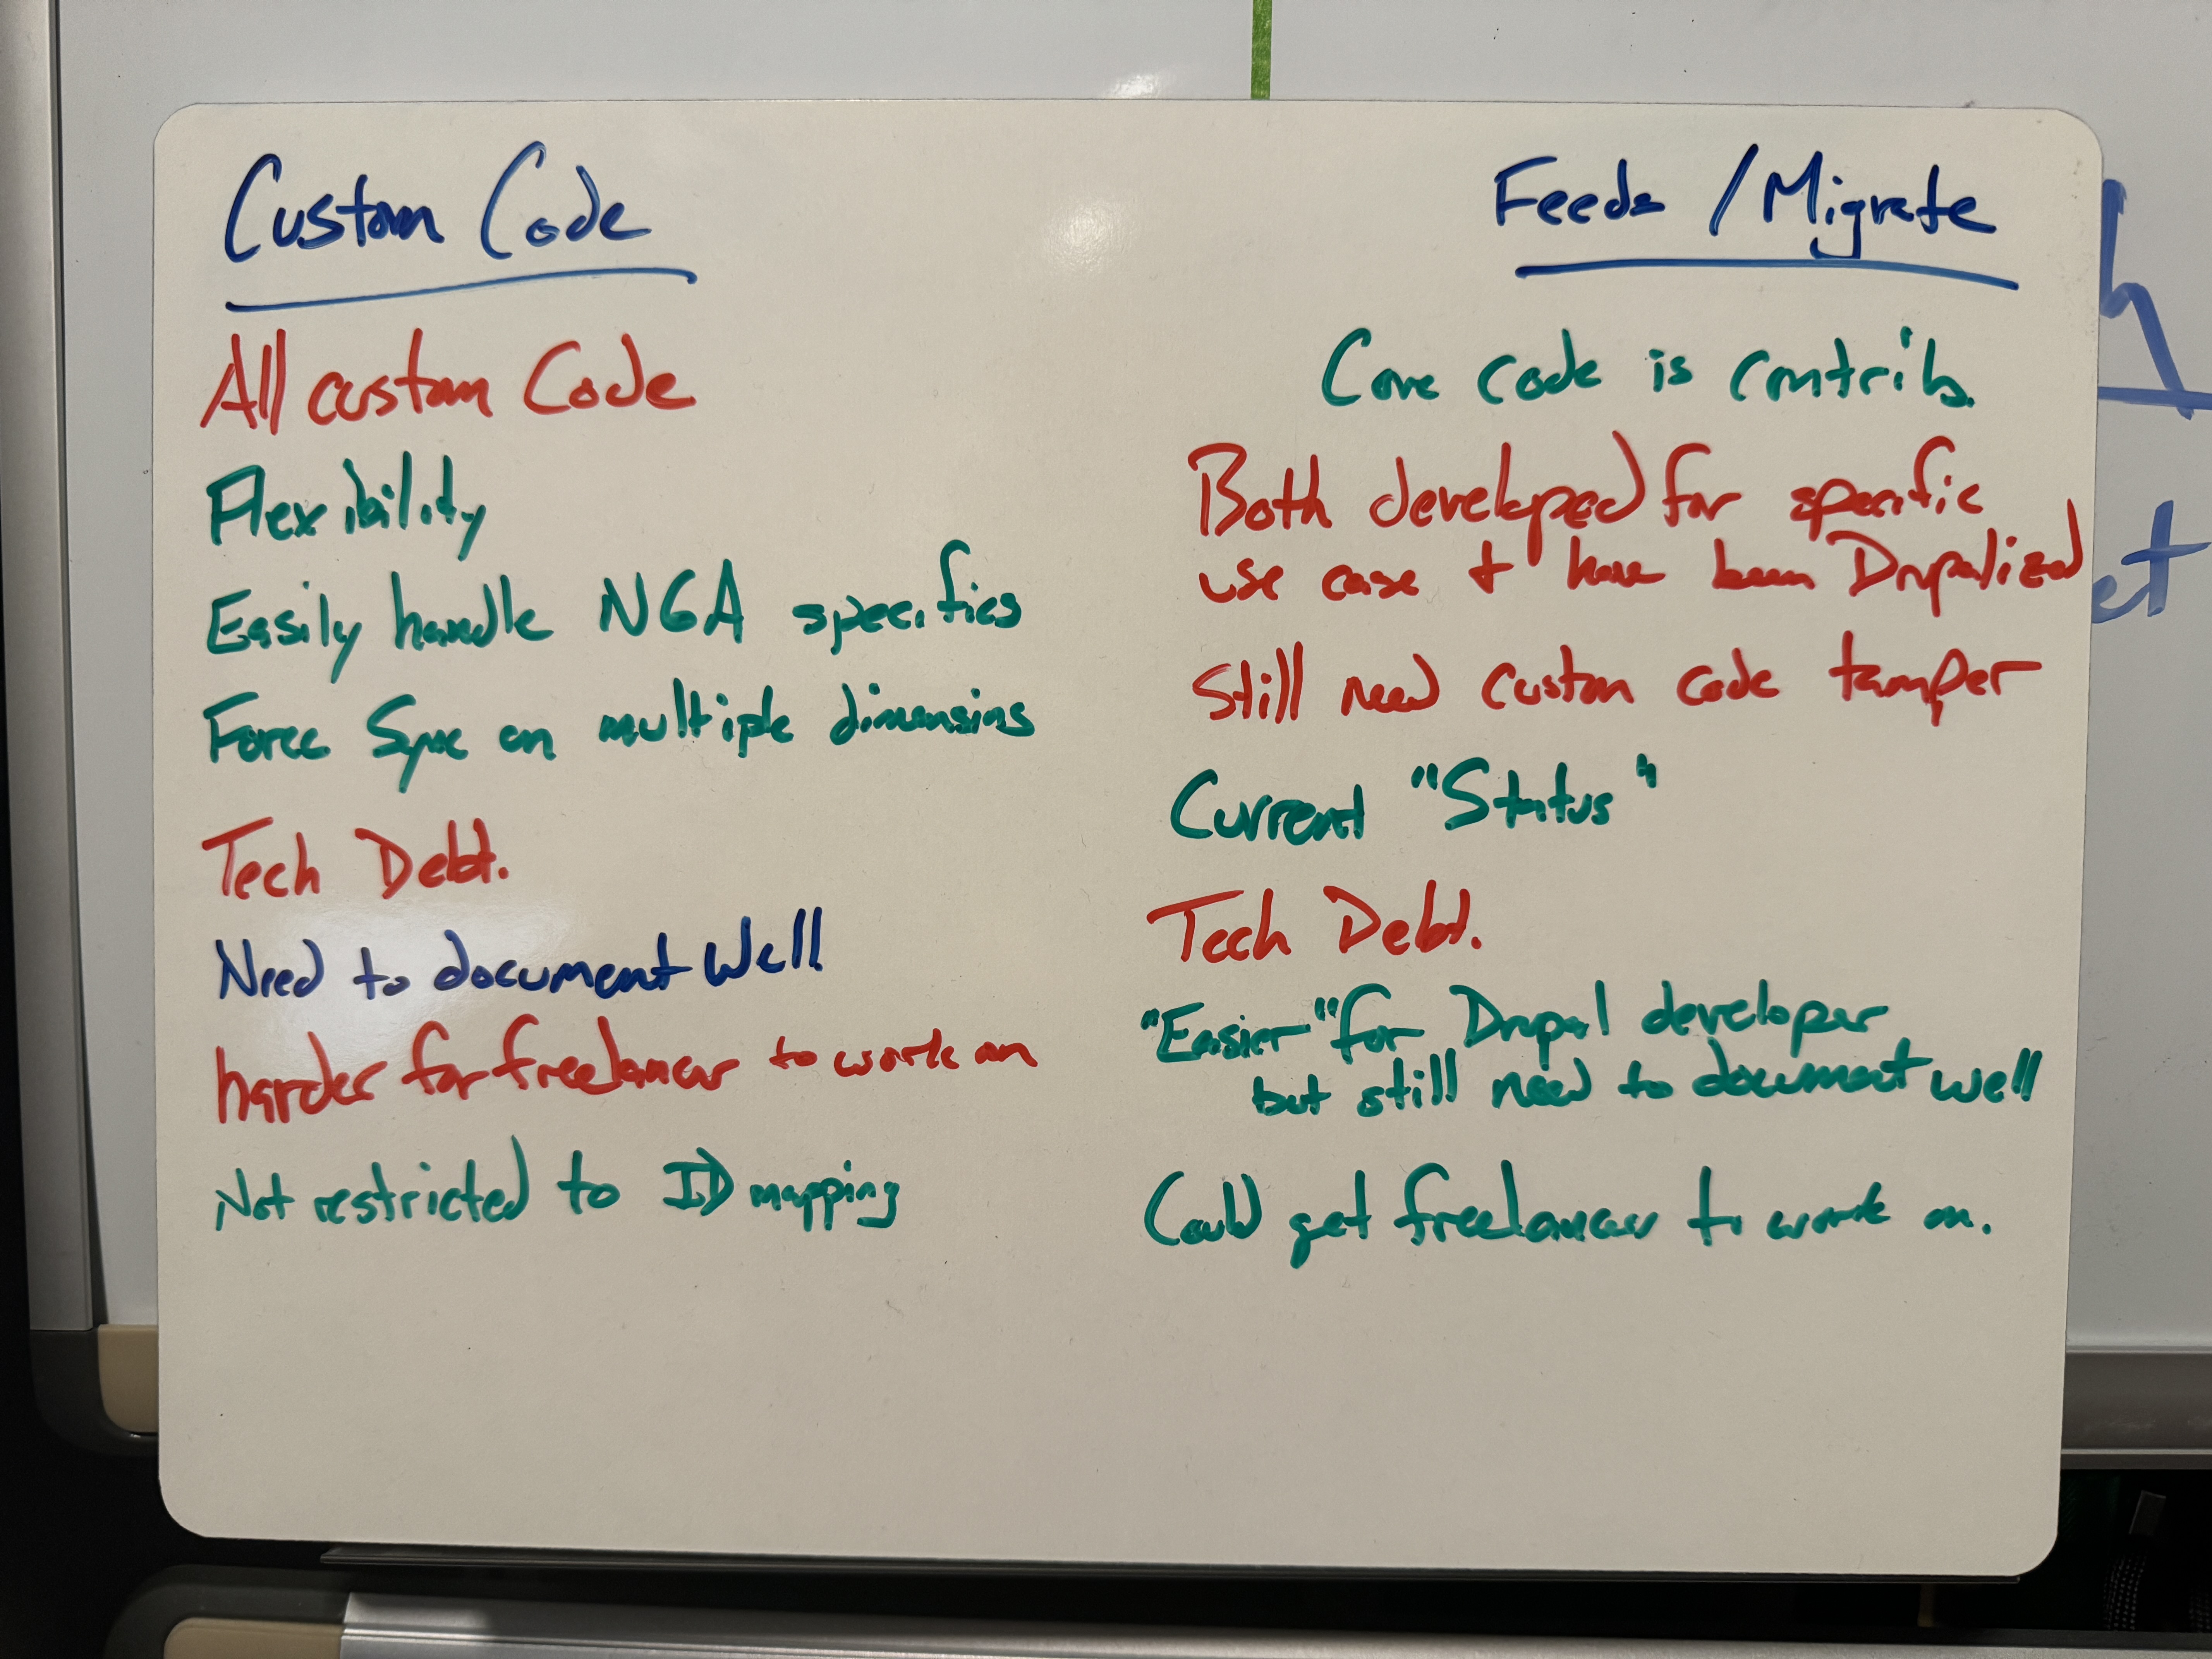 Custom Code
All custom Code
Flexibility
Easily handle NGA specifics
Force Sync on multiple dimensions
Tech Debt.
Need to document Well
harder for freelancer to work on
Not restricted to ID mapping
Feeds / Migrate
Core code is contrib.
Both developed for specific
use case + have been Drupalized
Still need custom code tamper
Current "Status"
Tech Debt.
"Easier" for Drupal developer
but still need to document well
Could get freelancer to work on.
h
et